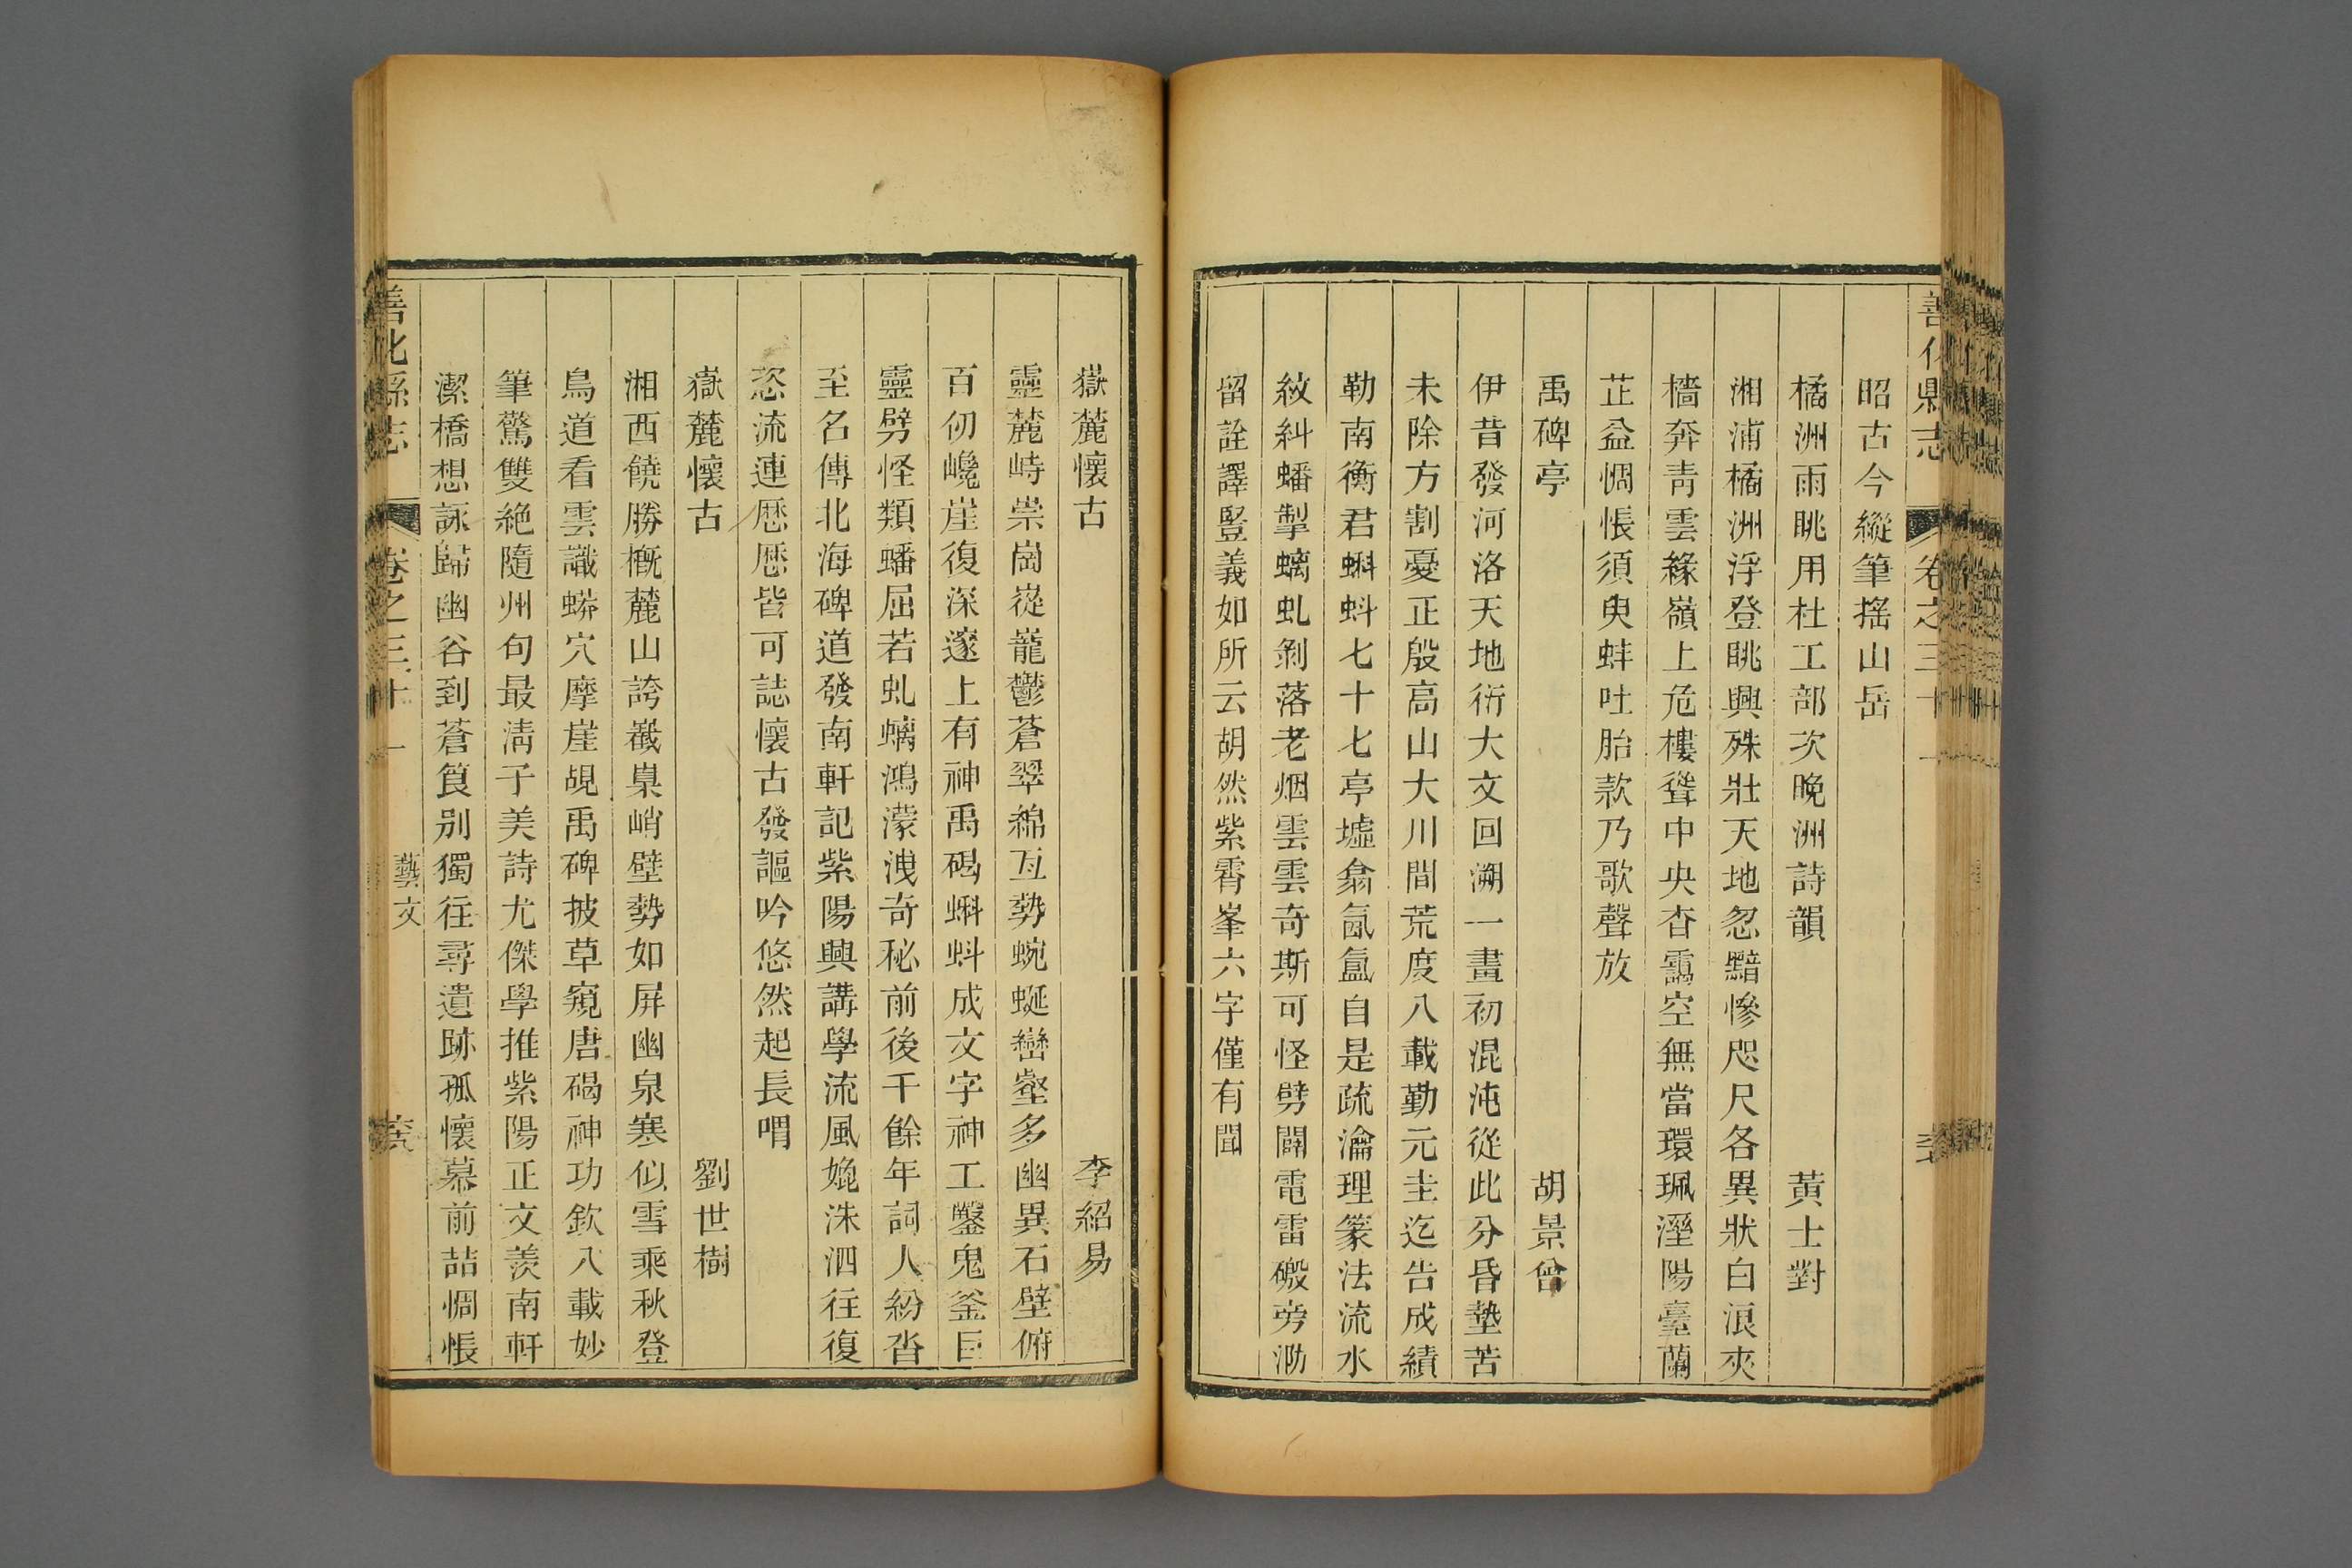 善化縣志 卷之三十一
昭古今縱筆搖山岳
橘洲雨眺用杜工部次晚洲詩韻 黃士對
湘浦橘洲浮登眺興殊壯天地忽黯慘咫尺各異狀白浪夾
檣奔青雲緣嶺上危樓聳中央杳靄空無當環珮溼陽臺蘭
芷益惆悵須臾蚌吐胎款乃歌聲放
禹碑亭 胡景曾
伊昔發河洛天地衍大文回溯一畫初混沌從此分昏墊苦
未除方割憂正殷高山大川間荒度八載勤元圭迄告成績
勒南衡君蝌蚪七十七亭墟翕氤氳自是疏瀹理篆法流水
紋糾蟠掣螭虬剝落老烟雲雲奇斯可怪劈闢電雷礮旁泐
留詮譯豎義如所云胡然紫霄峯六字僅有聞
嶽麓懷古 李紹易
靈麓峙崇崗嵸巃鬱蒼翠綿亙勢蜿蜒巒壑多幽異石壁俯
百仞巉崖復深邃上有神禹碣蝌蚪成文字神工鑿鬼釜巨
靈劈怪類蟠屈若虬螭鴻濛洩奇秘前後千餘年詞人紛沓
至名傳北海碑道發南軒記紫陽興講學流風媲洙泗往復
恣流連歷歷皆可誌懷古發謳吟悠然起長喟
嶽麓懷古 劉世樹
湘西饒勝概麓山誇嶻嵲峭壁勢如屏幽泉寒似雪乘秋登
鳥道看雲識蟒穴摩崖覘禹碑披草窺唐碣神功欽八載妙
筆驚雙絶隨州句最淸子美詩尤傑學推紫陽正文羨南軒
潔橋想詠歸幽谷到蒼筤别獨往尋遺跡孤懷慕前喆惆悵
善化縣志 卷之三十一 藝文